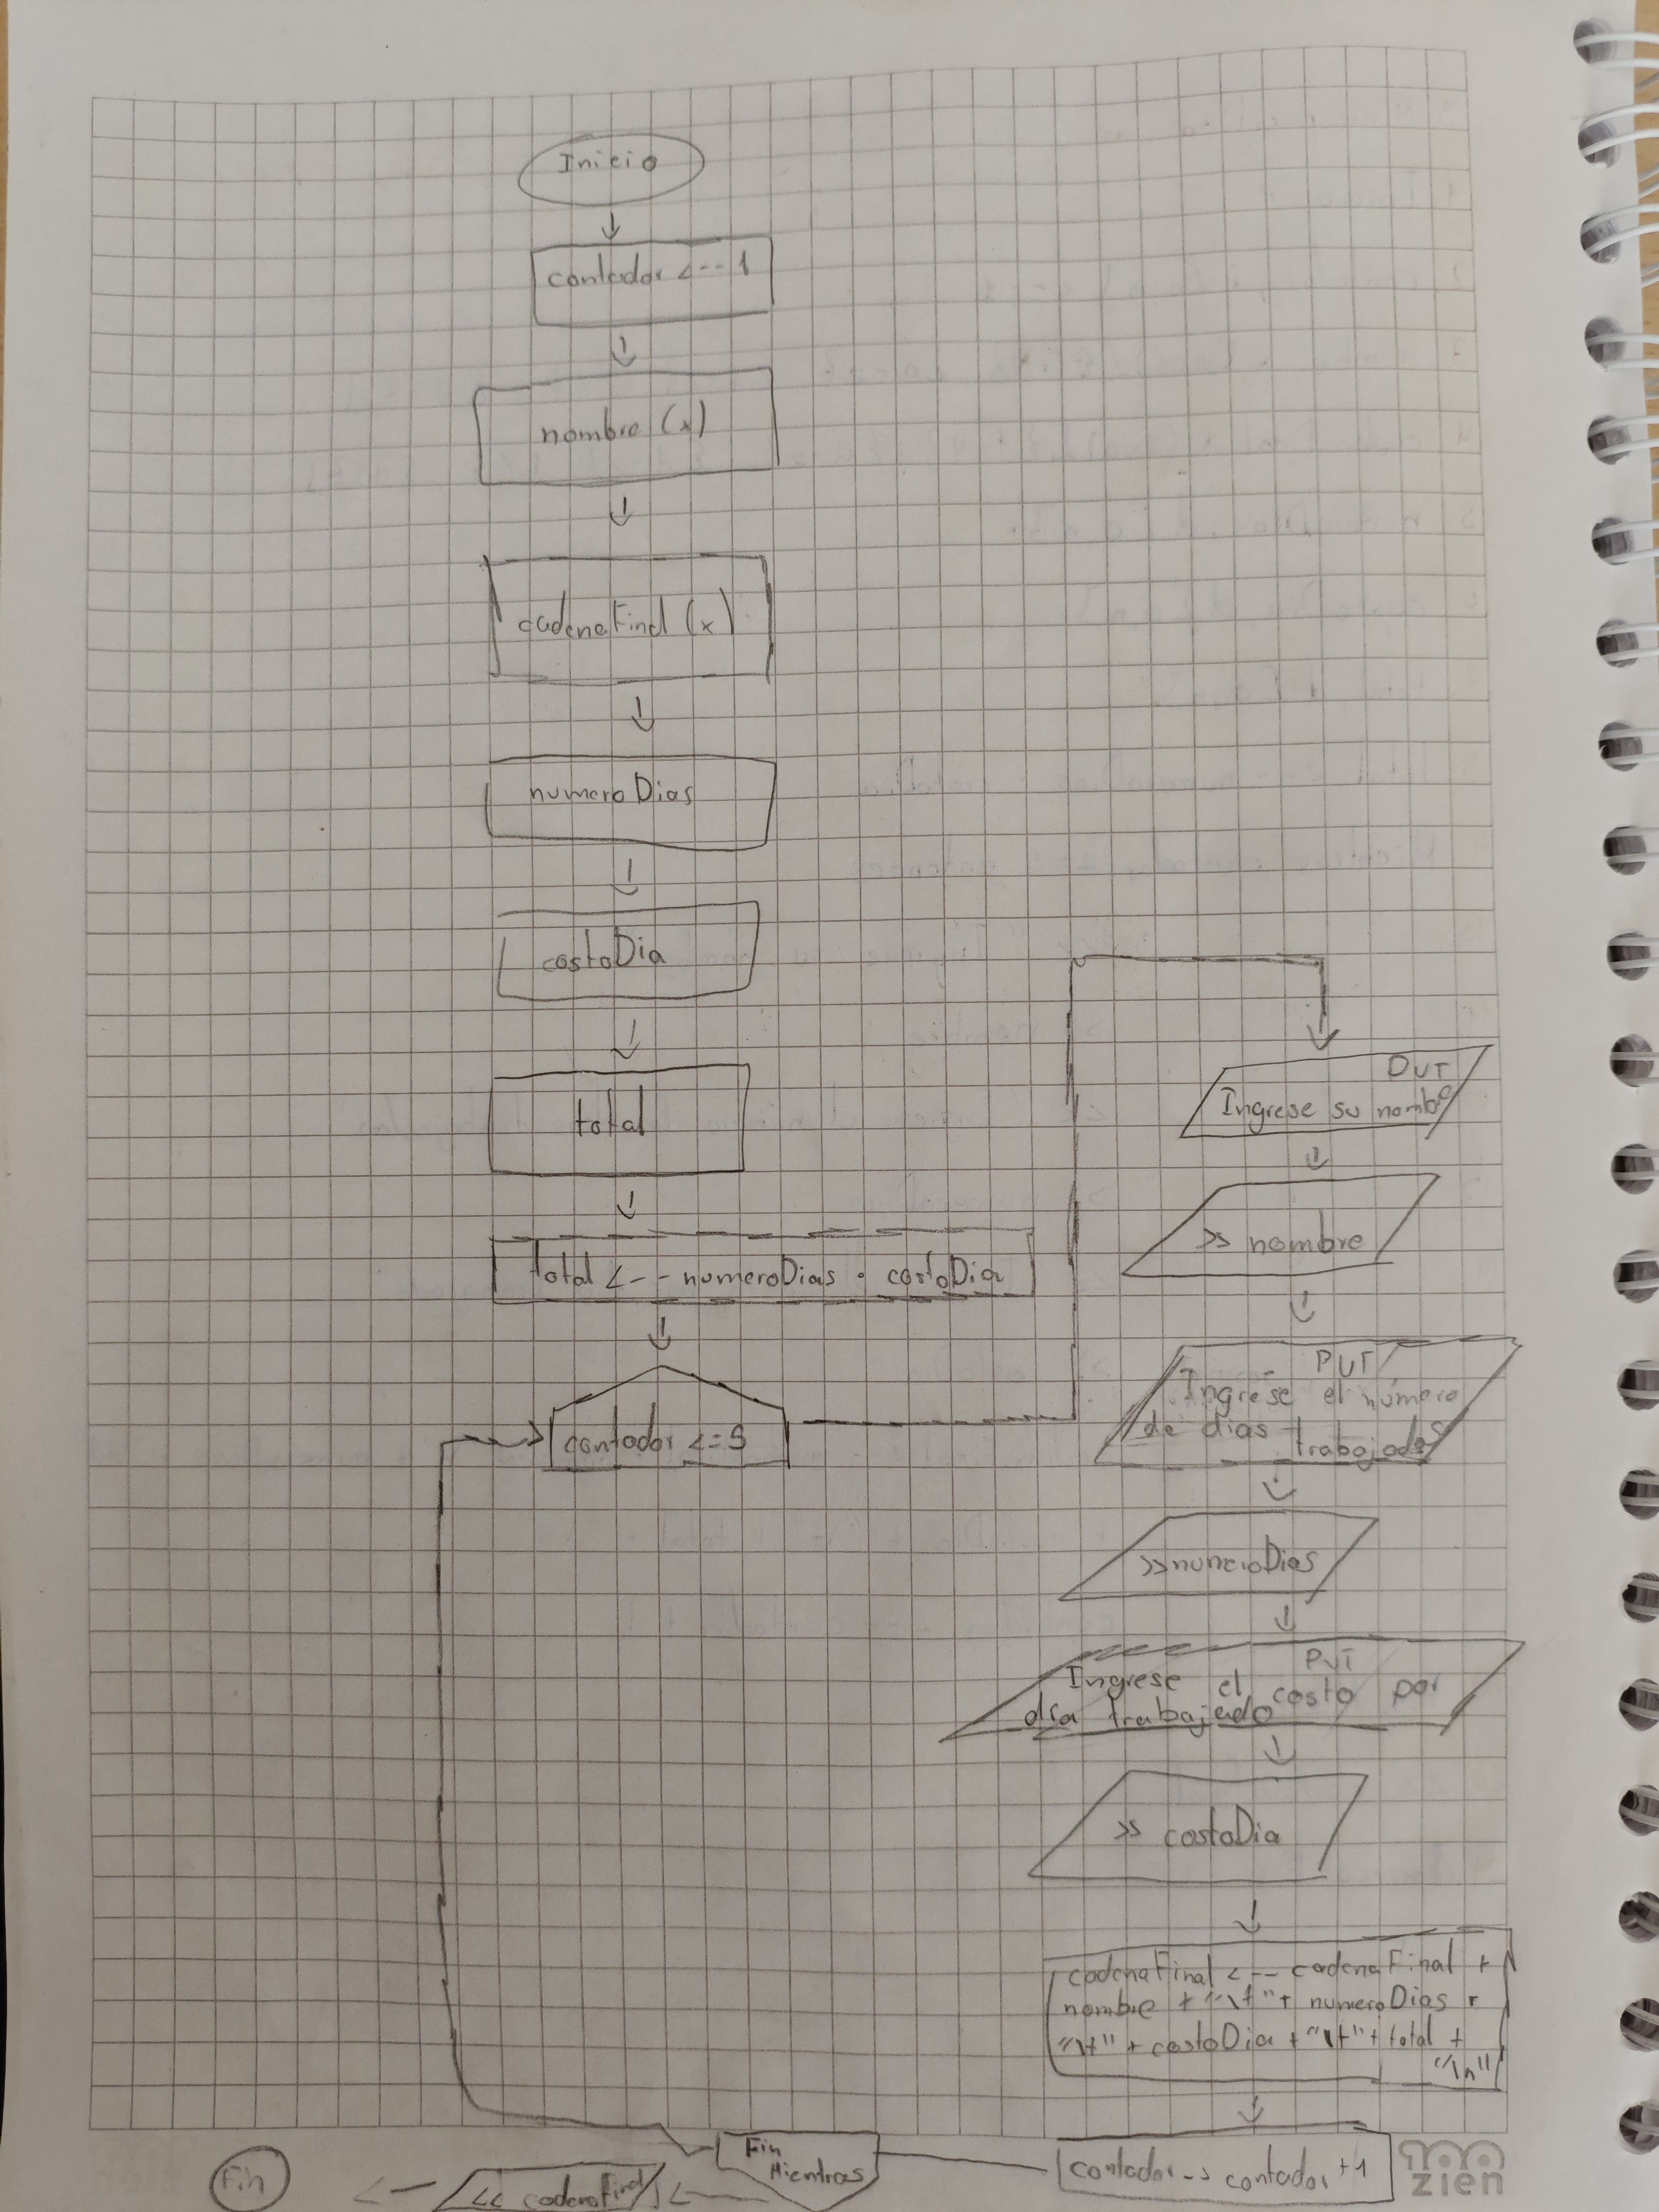 Inicio
contador <-- 1
nombre (x)
cadenaFinal (x)
numeroDias
costoDia
total
total <-- numeroDias * costoDia
contador <= 5
OUT
Ingrese su nombre
>> nombre
PUT
Ingrese el número
de dias trabajados
>> numeroDias
PUT
Ingrese el costo por
día trabajado
>> costoDia
cadenaFinal <-- cadenaFinal +
nombre + "\t" + numeroDias +
"\t" + costoDia + "\t" + total +
"\n"
contador -> contador +1
Fin
Mientras
<< cadenaFinal
Fin
zien